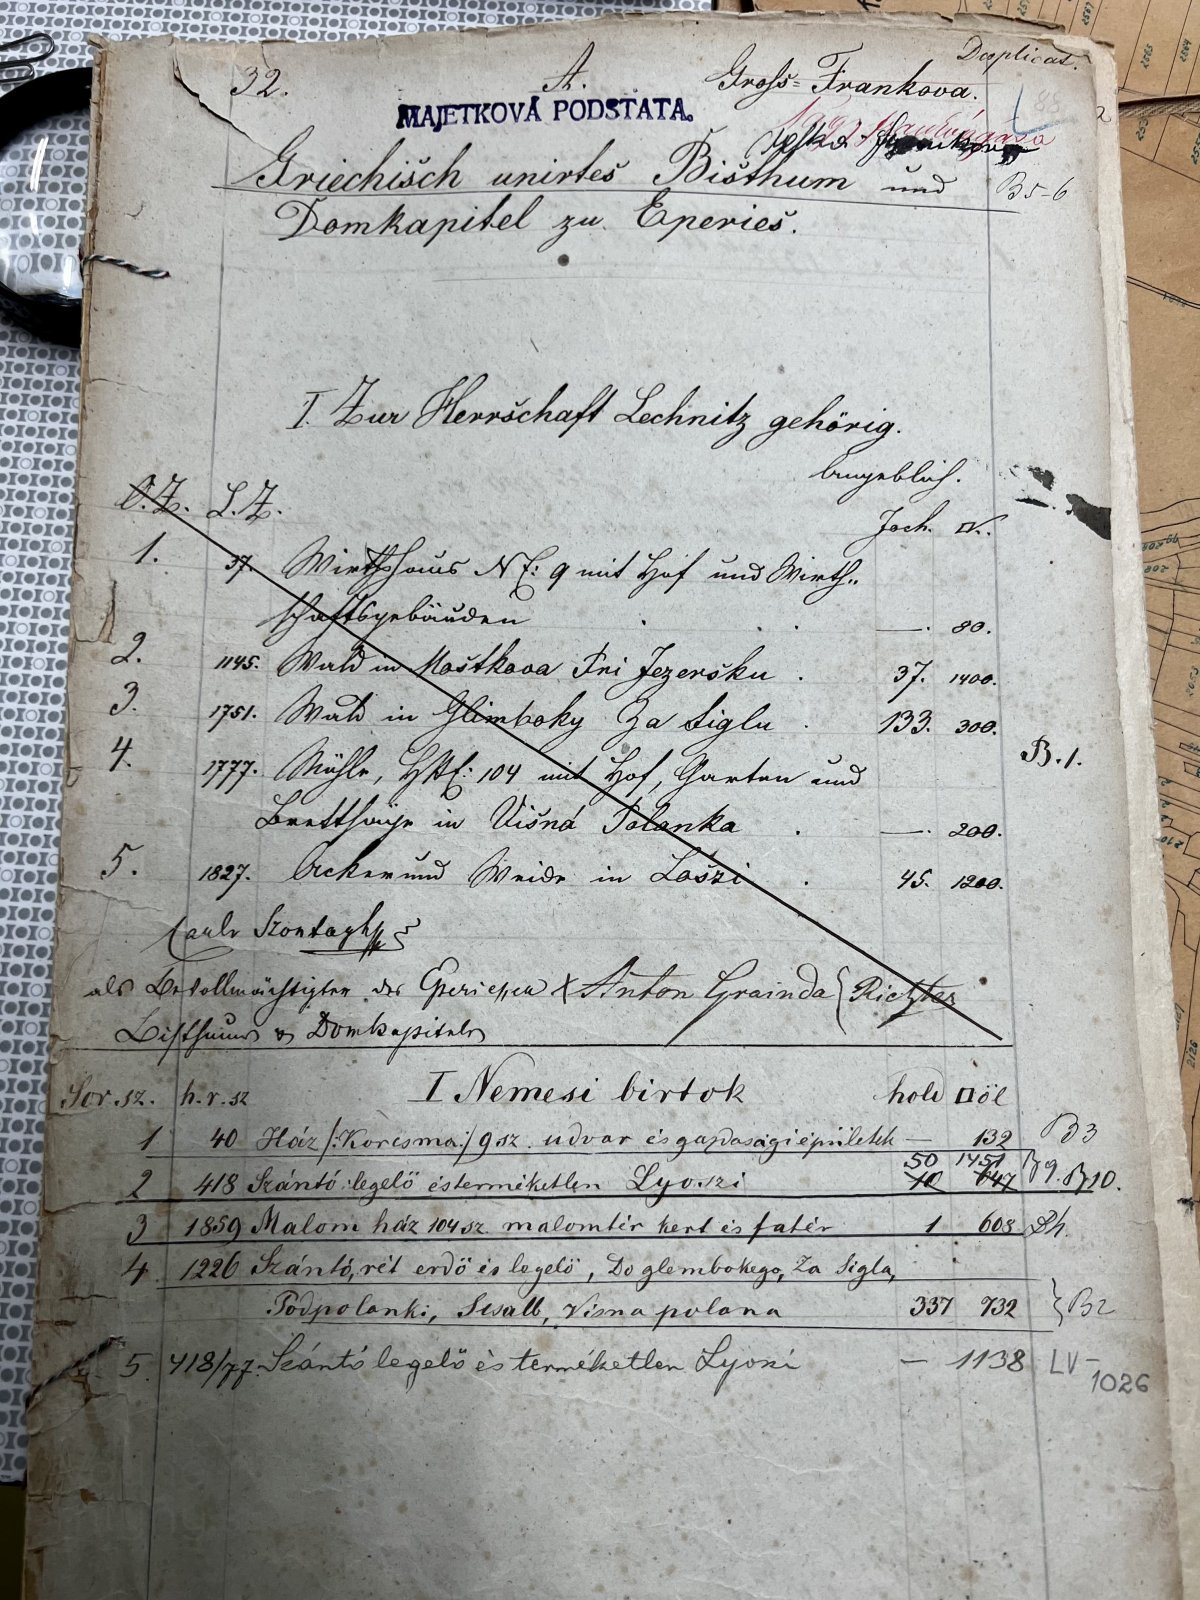 Duplicat.
32. A. Gross-Frankova.
MAJETKOVÁ PODSTATA.
Griechisch unirtes Bisthum und B5-6
Domkapitel zu Eperies.
I. Zur Herrschaft Lechnitz gehörig.
Angeblich.
O.Z. L.Z. Joch. □K.
1. 37. Wirthshaus N E: 9 mit Hof und Wirth=
schaftsgebäuden . . . —. 80.
2. 1145. Wald in Moštkova Pri Jezeršku . 37. 1400.
3. 1751. Wald in Glimboky Za Siglu . 133. 300.
B.1.
4. 1777. Mühle, HNE: 104 mit Hof, Garten und
Brettsäge in Višná Polanka . —. 200.
5. 1827. Acker und Weide in Laszi . 45. 1200.
Szontagh
als Bevollmächtigter des Eperiesser Anton Grainda Richter
Bisthums & Domkapitels
Sor.sz. h.r.sz I Nemesi birtok hold □öl
1 40 Ház /:Korcsma:/ 9 sz. udvar és gazdasági épületek — 132 B3
50 1451
2 418 Szántó legelő és terméketlen Lyoszi 10 647 B9. B10.
3 1859 Malom ház 104 sz. malomtér kert és fatér 1 608
4 1226 Szántó, rét erdő és legelő, Do glembokego, Za Sigla,
Podpolanki, Visna polana 337 732 B2
5. 418/77. Szántó legelő és terméketlen Lyoszi — 1138 LV-
1026